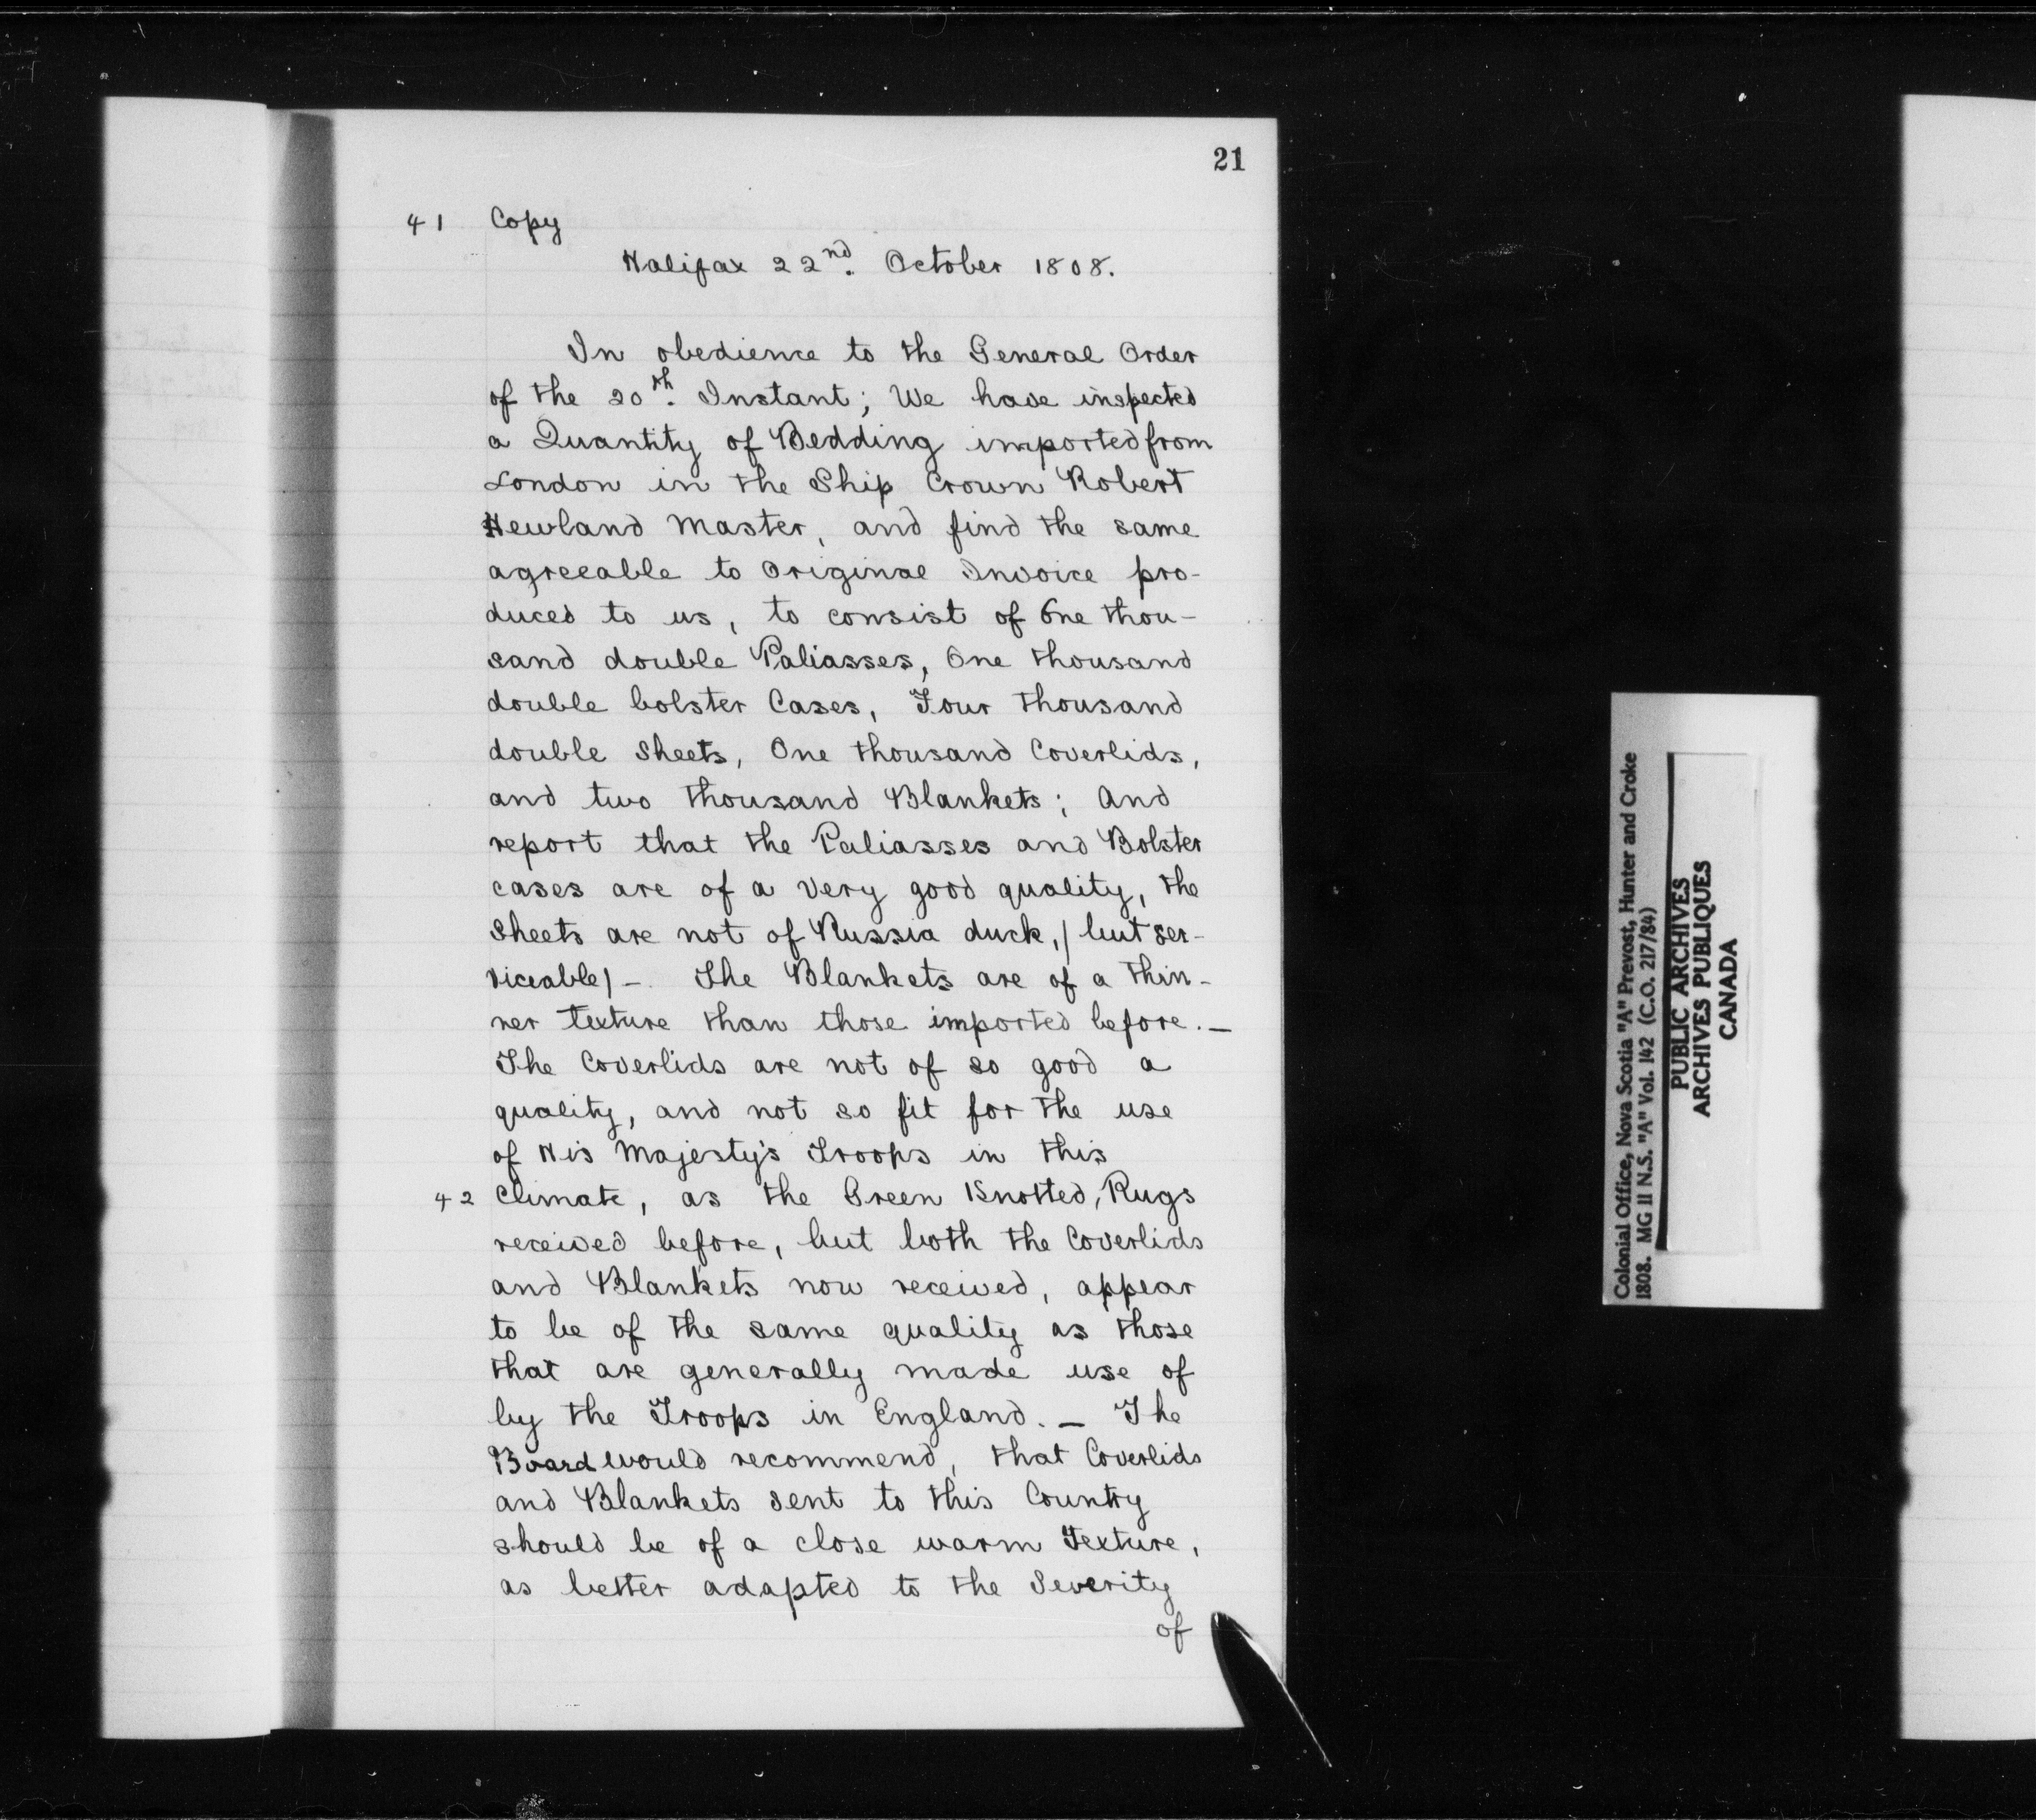 21
41 Copy
Halifax 22nd. October 1808.
In obedience to the General Order
of the 20th. Instant; We have inspected
a Quantity of Bedding imported from
London in the Ship Crown Robert
Newland Master, and find the same
agreeable to Original Invoice pro-
duced to us, to consist of One thou-
sand double Paliasses, One thousand
double bolster Cases, Four thousand
double Sheets, One thousand Coverlids,
and two thousand Blankets; And
report that the Paliasses and Bolster
cases are of a very good quality, the
Sheets are not of Russia duck, / but ser-
viceable / - The Blankets are of a thin-
ner texture than those imported before. -
The Coverlids are not of so good a
quality, and not so fit for the use
of His Majesty's Troops in this
42 Climate, as the Green Knotted, Rugs
received before, but both the Coverlids
and Blankets now received, appear
to be of the same quality as those
that are generally made use of
by the Troops in England. - The
Board would recommend, that Coverlids
and Blankets sent to this Country
should be of a close warm Texture,
as better adapted to the Severity
of
Colonial Office, Nova Scotia "A" Prevost, Hunter and Croke
1808. MG 11 N.S. "A" Vol. 142 (C.O. 217/84)
PUBLIC ARCHIVES
ARCHIVES PUBLIQUES
CANADA